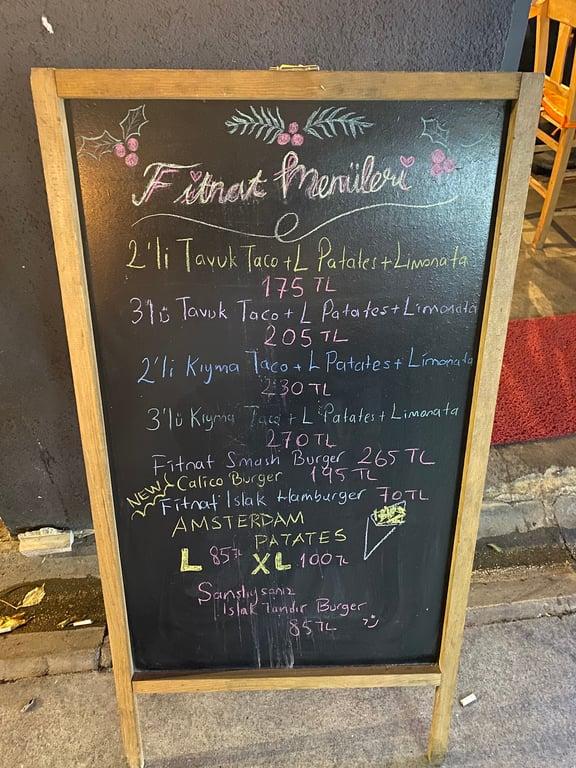 Fitnat Menüleri
2'li Tavuk Taco + L Patates + Limonata
175 TL
3'lü Tavuk Taco + L Patates + Limonata
205 TL
2'li Kıyma Taco + L Patates + Limonata
230 TL
3'lü Kıyma Taco + L Patates + Limonata
270 TL
Fitnat Smash Burger 265 TL
Calico Burger 195 TL
NEW Fitnat Islak Hamburger 70 TL
AMSTERDAM
PATATES
L 85TL XL 100TL
Şanslıysanız
Islak Tandır Burger
85TL